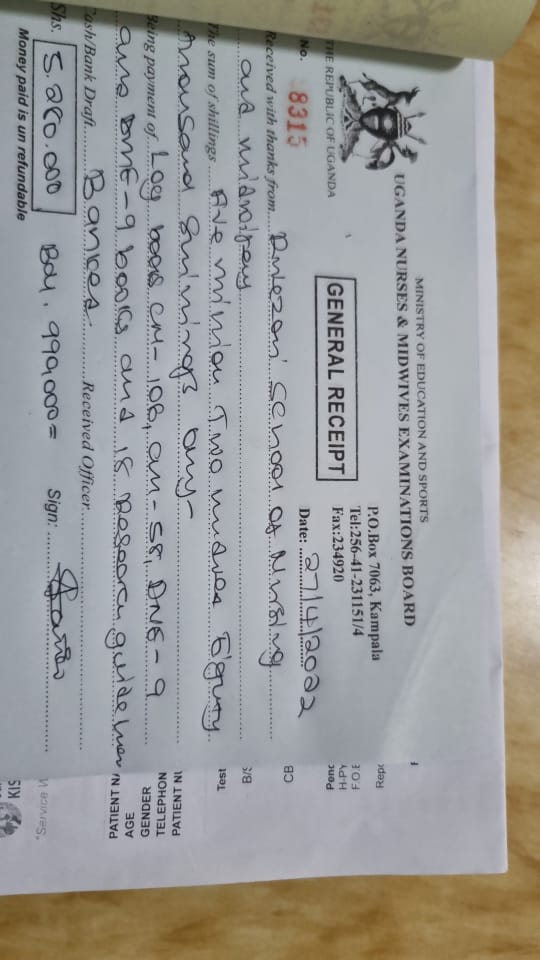 MINISTRY OF EDUCATION AND SPORTS
UGANDA NURSES & MIDWIVES EXAMINATIONS BOARD
THE REPUBLIC OF UGANDA
P.O.Box 7063, Kampala
Tel:256-41-231151/4
Fax:234920
GENERAL RECEIPT
No. 8315
Date: 27/4/2022
Received with thanks from School of Nursing
and midwifery
The sum of shillings Five million Two hundred Eighty
Thousand shillings only-
Being payment of Log books CM-108, CM-58, DNE-9
and DME-9 books and 18 Research guideline
Cash/Bank Draft Banked Received Officer
Shs. 5.280.000 Bal. 999,000= Sign:
Money paid is un refundable
CB
B/S
Test
PATIENT N
TELEPHON
GENDER
AGE
PATIENT N
"Service
KIS